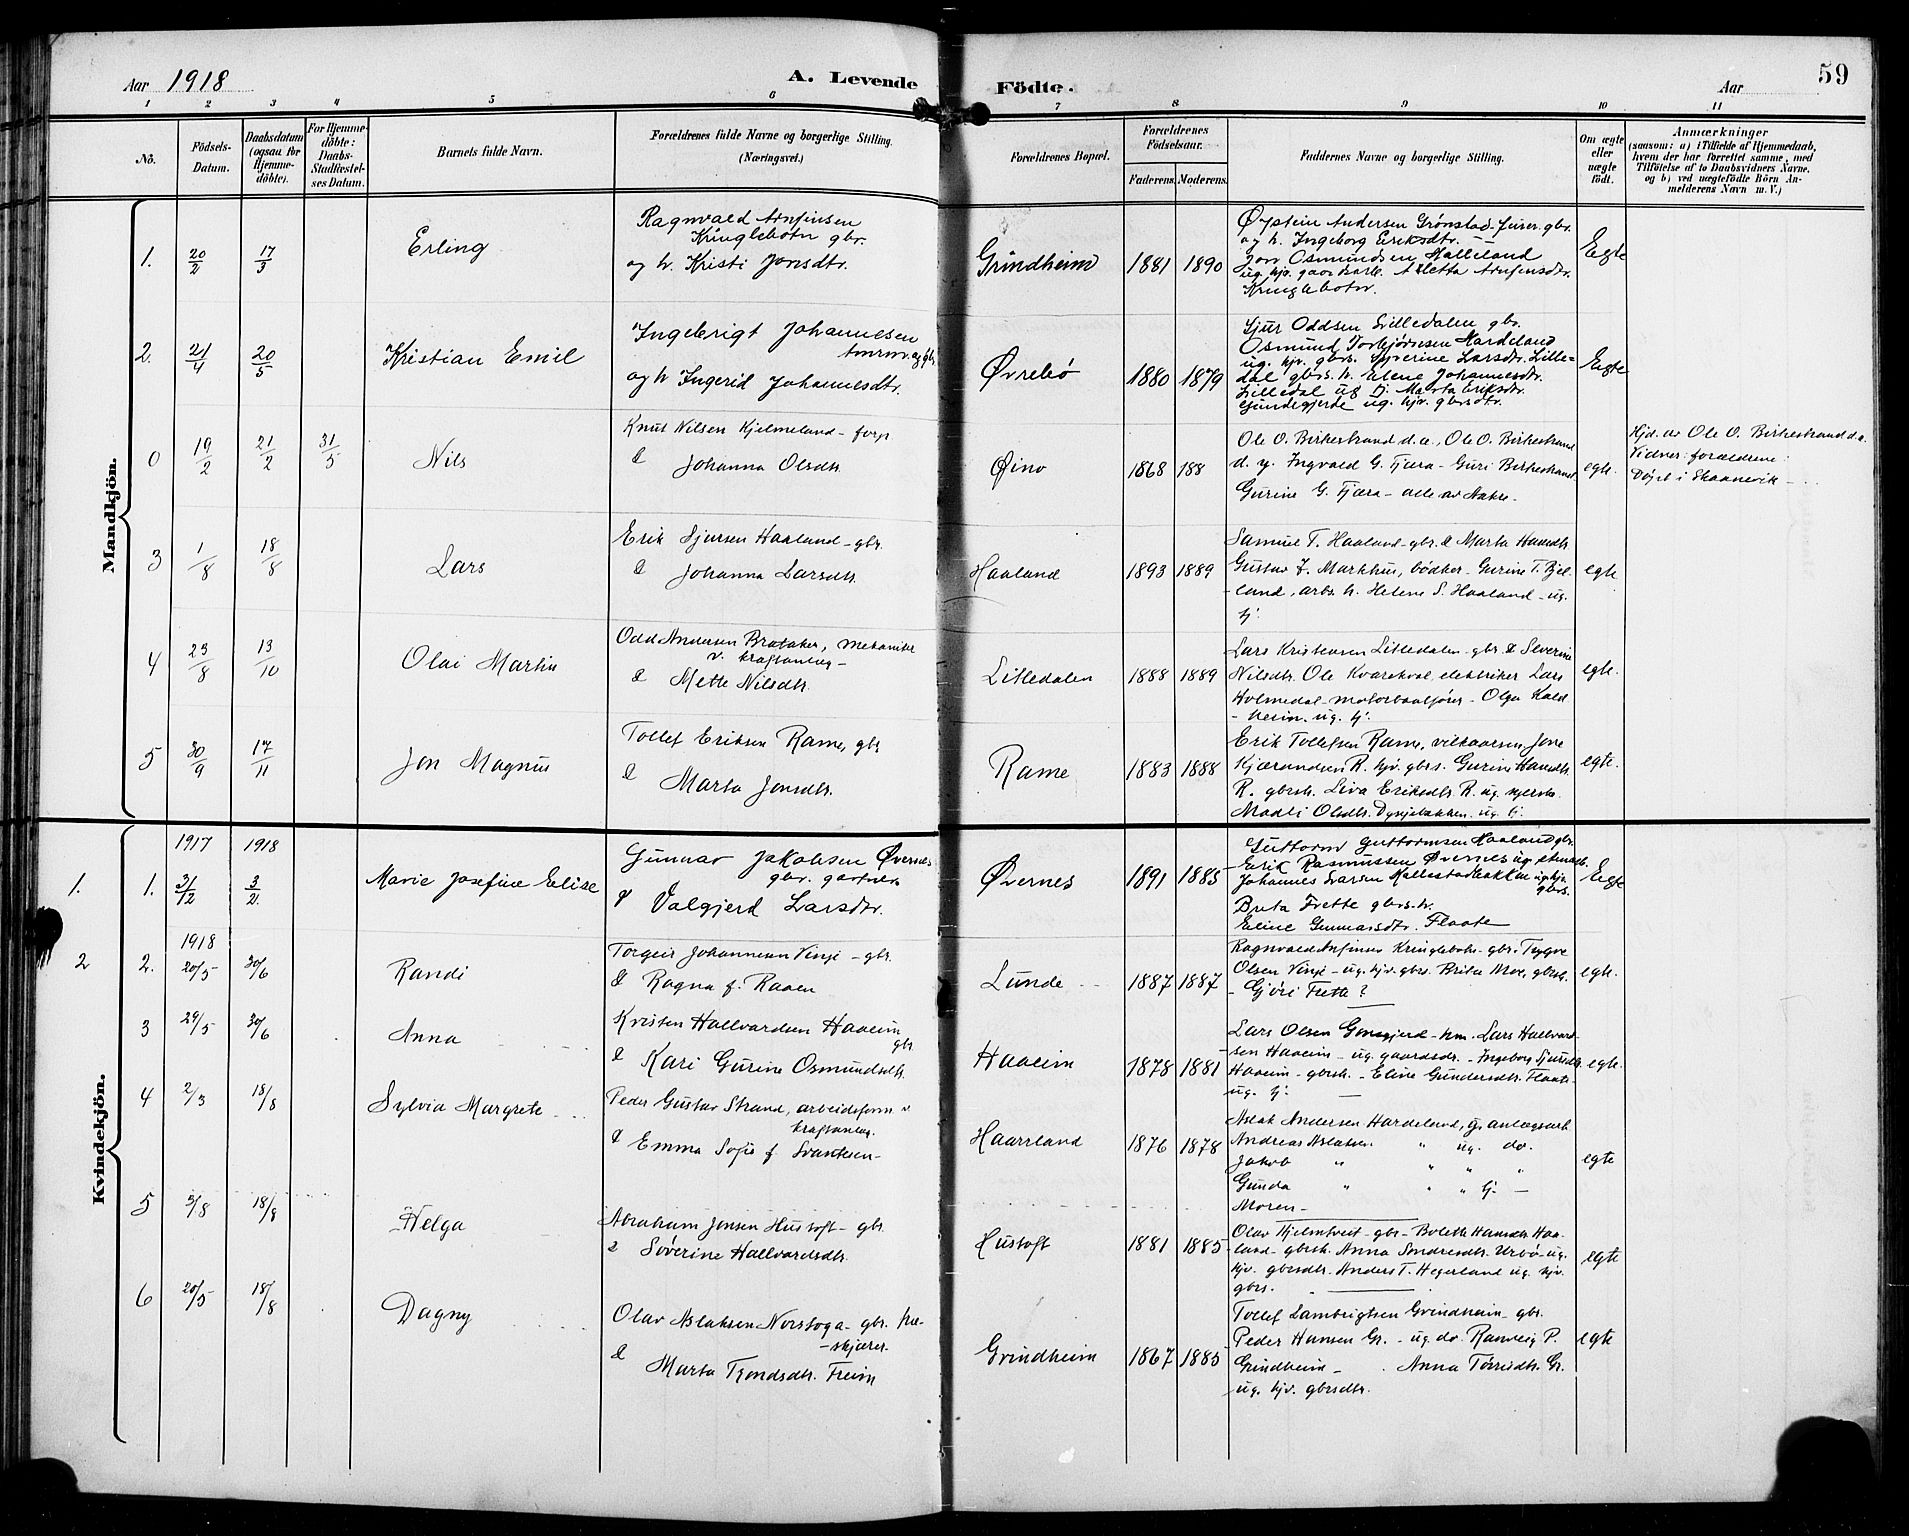 Aar 1918
A. Levende
Födte.
Aar
59
1 2 3 4 5 6 7 8 9 10 11
No.
Födsels-Datum.
Daabsdatum (ogsaa for Hjemme-döbte).
For Hjemme-döbte: Daabs-Stadfæstel-ses Datum.
Barnets fulde Navn.
Forældrenes fulde Navne og borgerlige Stilling.
(Næringsvei.)
Forældrenes Bopæl.
Forældrenes Födselsaar.
Faderens. Moderens.
Faddernes Navne og borgerlige Stilling.
Om ægte eller uægte födt.
Anmærkninger
(saasom: a) i Tilfælde af Hjemmedaab,
hvem der har forrettet samme, med
Tilföielse af to Daabsvidners Navne.
og b) ved uægtefödte Börn An-
melderens Navn m. V.)
Mandkjön.
1. 20/2 17/3 Erling
Ragnvald Arnfinsen
Kringlebotn gbr.
og h. Kristi Jonsdtr.
Grindheim 1881 1890
Øystein Andersen Grønstad
og h. Ingeborg Eriksdtr.
Jon Osmundsen Halleland
ug. hjv. Arnfinsdtr.
Kringlebotn.
Egte
2. 21/4 20/5 Kristian Emil
Ingebrigt Johannesen
tmrm. og gbr.
og h Ingerid Johannesdtr.
Øvrebø 1880 1879
Sjur Oddsen Lilledalen gbr.
Osmund Torbjørnsen Hardeland
ug. hjv. gbrs. Syverine Larsdtr. Lille-
dal gbrs. h. Elene Johannesdtr.
Lilledal ug tj. Marta Eriksdtr.
ug. hjv. gbrsdtr.
Egte
0 19/2 21/2 31/5 Nils
Knut Nilsen Hjelmeland - forp
& Johanna Olsdtr
Øino 1868 188
Ole O. Birkestrand d.e., Ole O. Birkestrand
d. y. Ingvald G. Fjæra - Guri Birkestrand
Gurine G. Fjæra - alle av
egte.
Hjd. av Ole O. Birkestrand d.e.
Vidner: forældrene:
Døpt i Skaanevik -
3 1/8 18/8 Lars
Erik Sjursen Haaland - gbr.
& Johanna Larsdtr.
Haaland 1893 1889
Samuel T. Haaland - gbr. & Marta Hansdtr
Gustav J. Markhus, bødker - Gurine T. Bjel-
land, arbs. h. Helene S. Haaland - ug.
tj.
egte
4 23/8 13/10 Olai Martin
Odd Andersen Brataker, mekaniker
v. kraftanlæg -
& Mette Nilsdtr.
Litledalen 1888 1889
Lars Kristensen Litledalen - gbr. & Severine
Nilsdtr. Ole Kvarekval, elektriker Lars
Holmedal - motorbaatfører - Olga Kald-
heim. ug. tj.
egte.
5 30/9 17/11 Jon Magnus
Tollef Eriksen Rame, gbr
& Marta Jonsdtr.
Rame 1883 1888
Erik Tollefsen Rame, vilkaarsm, Jone
Kjærandsen R. hjv. gbrs. Gurine Hansdtr.
R. gbrsh. Liva Eriksdtr. R. ug.
Madli Olsdtr. ug. tj.
egte.
Kvindekjön.
1917 1918
1. 1. 31/12 3/2. Marie Josefine Elise
Gunnar Jakobsen Øvernes
gbr. gartner
& Valgjerd Larsdtr.
Øvernes 1891 1885
Guttorm Guttormsen Haaland gbr.
Erik Rasmussen Øvernes ug.
Johannes Larsen Mallestadbakken ug hjv.
gbrs.
Brita Frette gbrs. h.
Eline Gunnarsdtr. Flaate
Egte
1918
2 2. 20/5 30/6 Randi
Torgeir Johannesen Vinje - gbr.
& Ragna f. Raaen
Lunde 1887 1887
Ragnvald Arnfinsen Kringlebotn - gbr. Trygve
Olsen Vinje - ug. hjv. gbrs. Brita Moe, gbrsh.
- Gjøri Frette?
egte.
3 29/5 30/6 Anna
Kristen Hallvardsen Haaeim
gbr.
& Kari Gurine Osmundsdtr.
Haaeim 1878 1881
Lars Olsen - hm. Lars Hallvard-
sen Haaeim - ug. gaardsdr. - Ingeborg Sjursdtr
Haaeim - gbrsh. - Eline Gundersdtr. Flaate -
ug. tj. -
egte.
4 2/3 18/8 Sylvia Margrete
Peder Gustav Strand, arbeidsform v
kraftanlæg.
& Emma Sofie f. Svantesen -
Haarrland 1876 1878
Aslak Andersen Hardeland, g. anlægsarb
Andreas Aslaksen " ug. do.
Jakob " " " "
Gunda " " " tj. -
Moren -
egte
5 3/8 18/8 Helga
Abraham Jonsen Hustoft - gbr.
& Søverine Hallvardsdtr.
Hustoft 1881 1885
Olav Hjelmtveit - gbr - Boleth Hansdtr. Haa-
land - gbrsh. Anna Sondresdtr. Urbø - ug.
hjv. gbrsdtr. Anders T. Hegerland ug. hjv.
gbrs.
egte
6 20/5 18/8 Dagny
Olav Aslaksen Norstoga - gbr. træ-
- skjærer.
& Marta Trondsdtr. Freim
Grindheim 1867 1885
Tollef Lambrigtsen Grindheim - gbr.
Peder Hansen Gr. - ug. do. Ranveig P.
Grindheim - Anna Torrisdtr. Gr.
ug. hjv. gbrsdtr.
egte